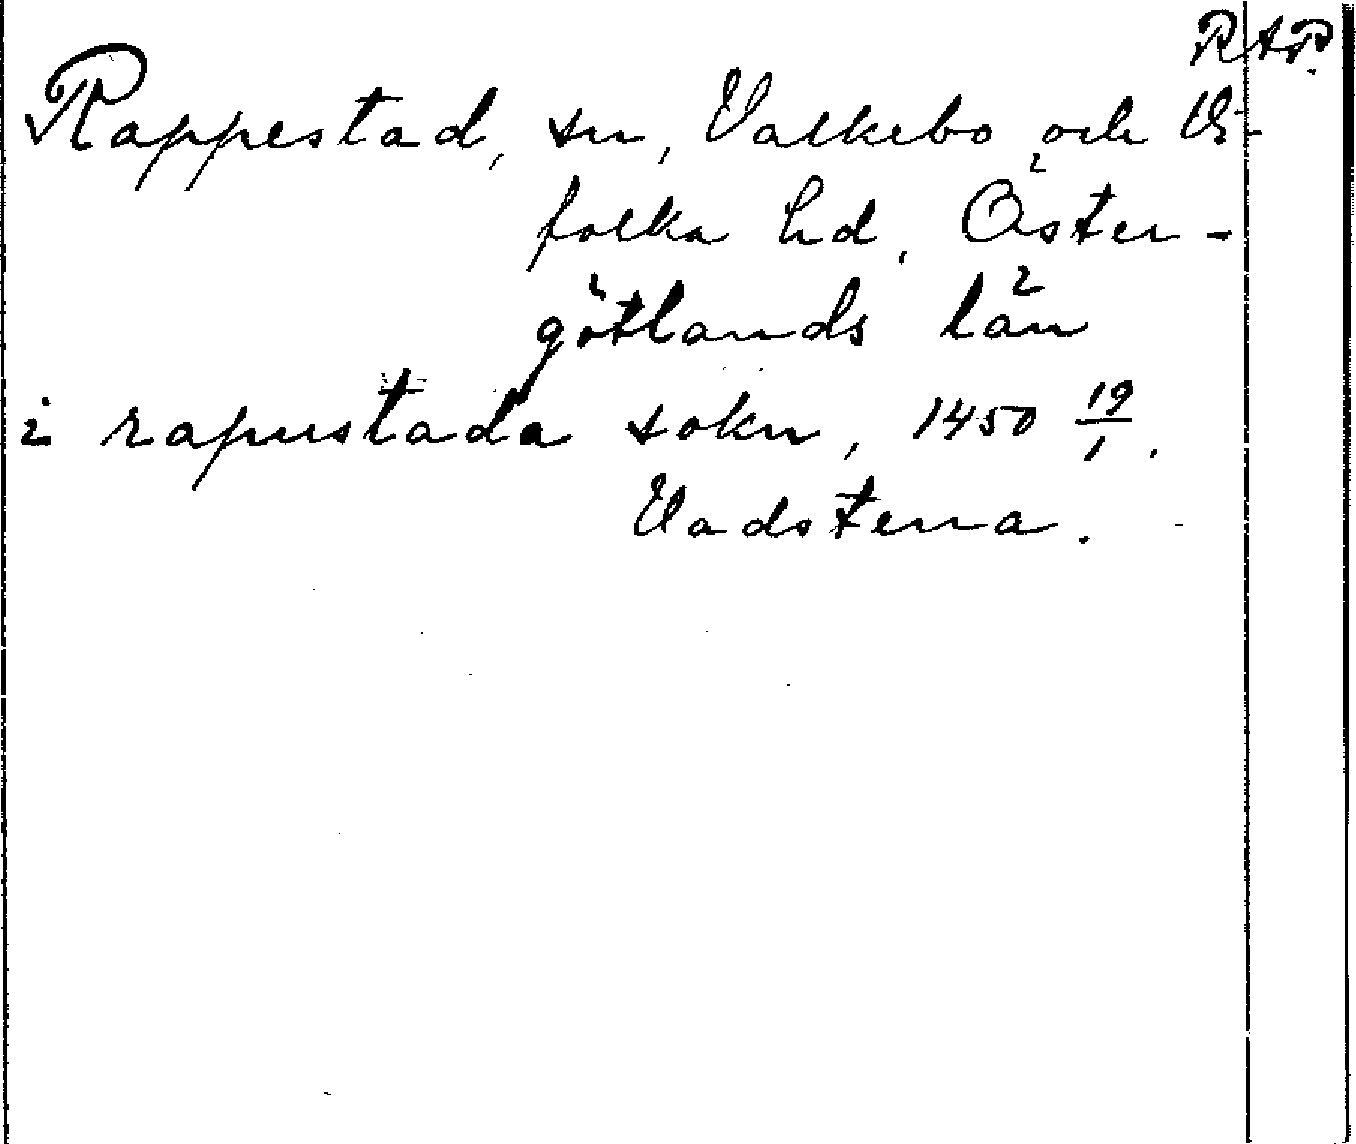 RAP.
Rappestad, sn, Valkebo och Vi-
folka hd, Öster-
götlands län
i rapustada sokn, 1450 19/1.
Vadstena.